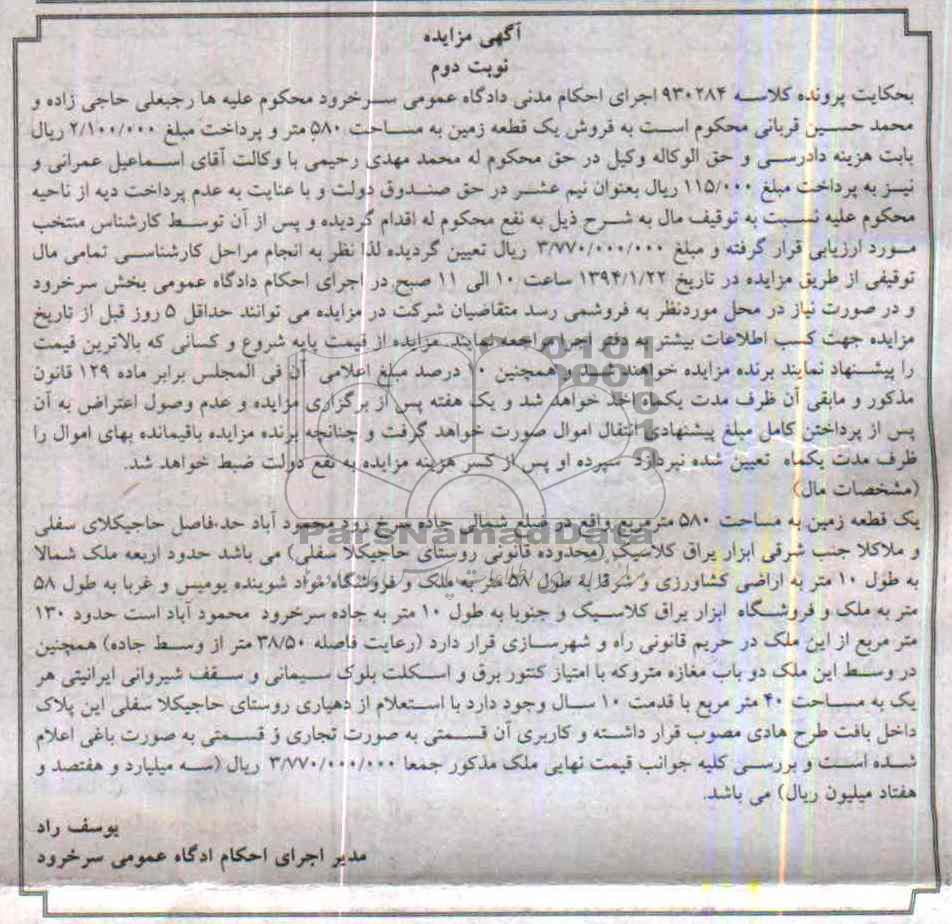 آگهی مزایده
نوبت دوم
بحکایت پرونده کلاسه ۹۳۰۲۸۴ اجرای احکام مدنی دادگاه عمومی سرخرود محکوم علیه ها رجبعلی حاجی زاده و
محمد حسین قربانی محکوم است به فروش یک قطعه زمین به مساحت ۵۸۰ متر و پرداخت مبلغ ۲/۱۰۰/۰۰۰ ریال
بابت هزینه دادرسی و حق الوکاله وکیل در حق محکوم له محمد مهدی رحیمی با وکالت آقای اسماعیل عمرانی و
نیز به پرداخت مبلغ ۱۱۵/۰۰۰ ریال بعنوان نیم عشر در حق صندوق دولت و با عنایت به عدم پرداخت دیه از ناحیه
محکوم علیه نسبت به توقیف مال به شرح ذیل به نفع محکوم له اقدام گردیده و پس از آن توسط کارشناس منتخب
مورد ارزیابی قرار گرفته و مبلغ ۳/۷۷۰/۰۰۰/۰۰۰ ریال تعیین گردیده لذا نظر به انجام مراحل کارشناسی تمامی مال
توقیفی از طریق مزایده در تاریخ ۱۳۹۴/۱/۲۲ ساعت ۱۰ الی ۱۱ صبح در اجرای احکام دادگاه عمومی بخش سرخرود
و در صورت نیاز در محل موردنظر به فروشمی رسد متقاضیان شرکت در مزایده می توانند حداقل ۵ روز قبل از تاریخ
مزایده جهت کسب اطلاعات بیشتر به دفتر اجرا مراجعه نمایند. مزایده از قیمت پایه شروع و کسانی که بالاترین قیمت
را پیشنهاد نمایند برنده مزایده خواهند شد و همچنین ۱۰ درصد مبلغ اعلامی آن فی المجلس برابر ماده ۱۲۹ قانون
مذکور و مابقی آن ظرف مدت یکماه اخذ خواهد شد و یک هفته پس از برگزاری مزایده و عدم وصول اعتراض به آن
پس از پرداختن کامل مبلغ پیشنهادی انتقال اموال صورت خواهد گرفت و چنانچه برنده مزایده باقیمانده بهای اموال را
ظرف مدت یکماه تعیین شده نپردازد سپرده او پس از کسر هزینه مزایده به نفع دولت ضبط خواهد شد.
(مشخصات مال)
یک قطعه زمین به مساحت ۵۸۰ مترمربع واقع در ضلع شمالی جاده سرخ رود محمود آباد حد،فاصل حاجیکلای سفلی
و ملاکلا جنب شرقی ابزار یراق کلاسیک (محدوده قانونی روستای حاجیکلا سفلی) می باشد حدود اربعه ملک شمالا
به طول ۱۰ متر به اراضی کشاورزی و شرقا به طول ۵۸ متر به ملک و فروشگاه مواد شوینده یومیس و غربا به طول ۵۸
متر به ملک و فروشگاه ابزار یراق کلاسیک و جنوبا به طول ۱۰ متر به جاده سرخرود محمود آباد است حدود ۱۳۰
متر مربع از این ملک در حریم قانونی راه و شهرسازی قرار دارد (رعایت فاصله ۳۸/۵۰ متر از وسط جاده) همچنین
در وسط این ملک دو باب مغازه متروکه با امتیاز کنتور برق و اسکلت بلوک سیمانی و سقف شیروانی ایرانیتی هر
یک به مساحت ۴۰ متر مربع با قدمت ۱۰ سال وجود دارد با استعلام از دهیاری روستای حاجیکلا سفلی این پلاک
داخل بافت طرح هادی مصوب قرار داشته و کاربری آن قسمتی به صورت تجاری و قسمتی به صورت باغی اعلام
شده است و بررسی کلیه جوانب قیمت نهایی ملک مذکور جمعا ۳/۷۷۰/۰۰۰/۰۰۰ ریال (سه میلیارد و هفتصد و
هفتاد میلیون ریال) می باشد.
یوسف راد
مدیر اجرای احکام ادگاه عمومی سرخرود
ParsNamadData